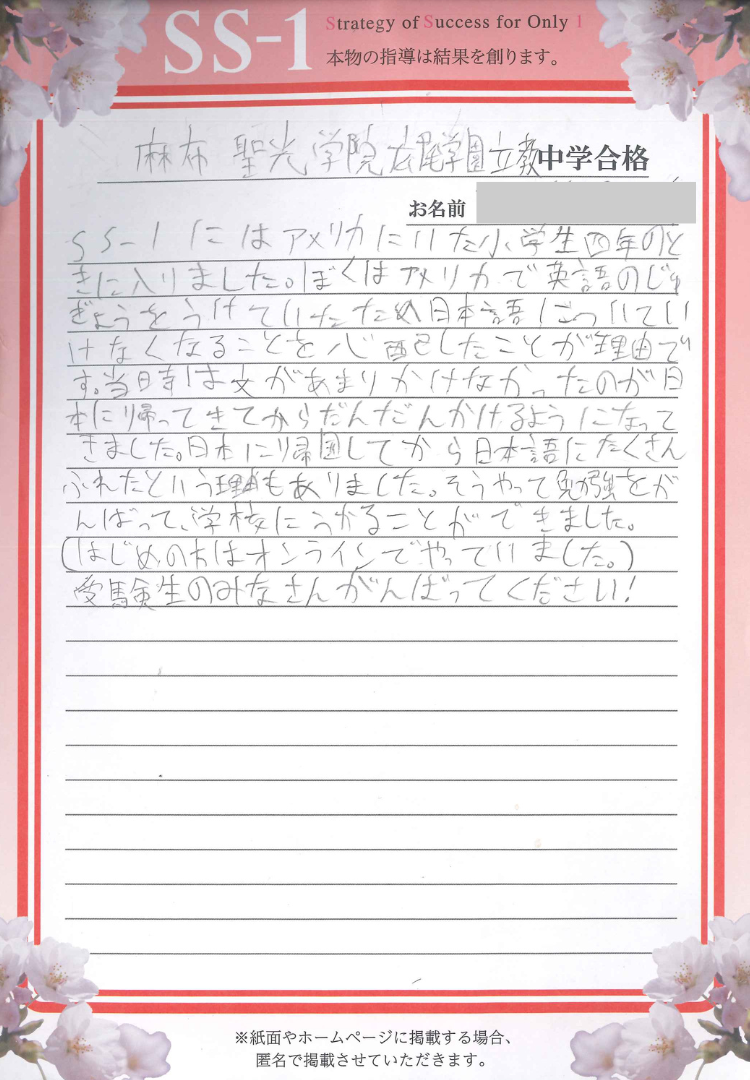 SS-1
Strategy of Success for Only 1
本物の指導は結果を創ります。
麻布 聖光学院 広尾学園 立教中学合格
お名前
SS-1にはアメリカにいた小学生四年のと
きに入りました。ぼくはアメリカで英語のじゅ
ぎょうをうけていたため日本語についてい
けなくなることを心配したことが理由で
す。当時は文があまりかけなかったのが日
本に帰ってきてからだんだんかけるようになって
きました。日本に帰国してから日本語にたくさん
ふれたという理由もありました。そうやって勉強をが
んばって、学校にうかることができました。
(はじめのちはオンラインでやっていました。)
受験生のみなさんがんばってください!
※紙面やホームページに掲載する場合、
匿名で掲載させていただきます。